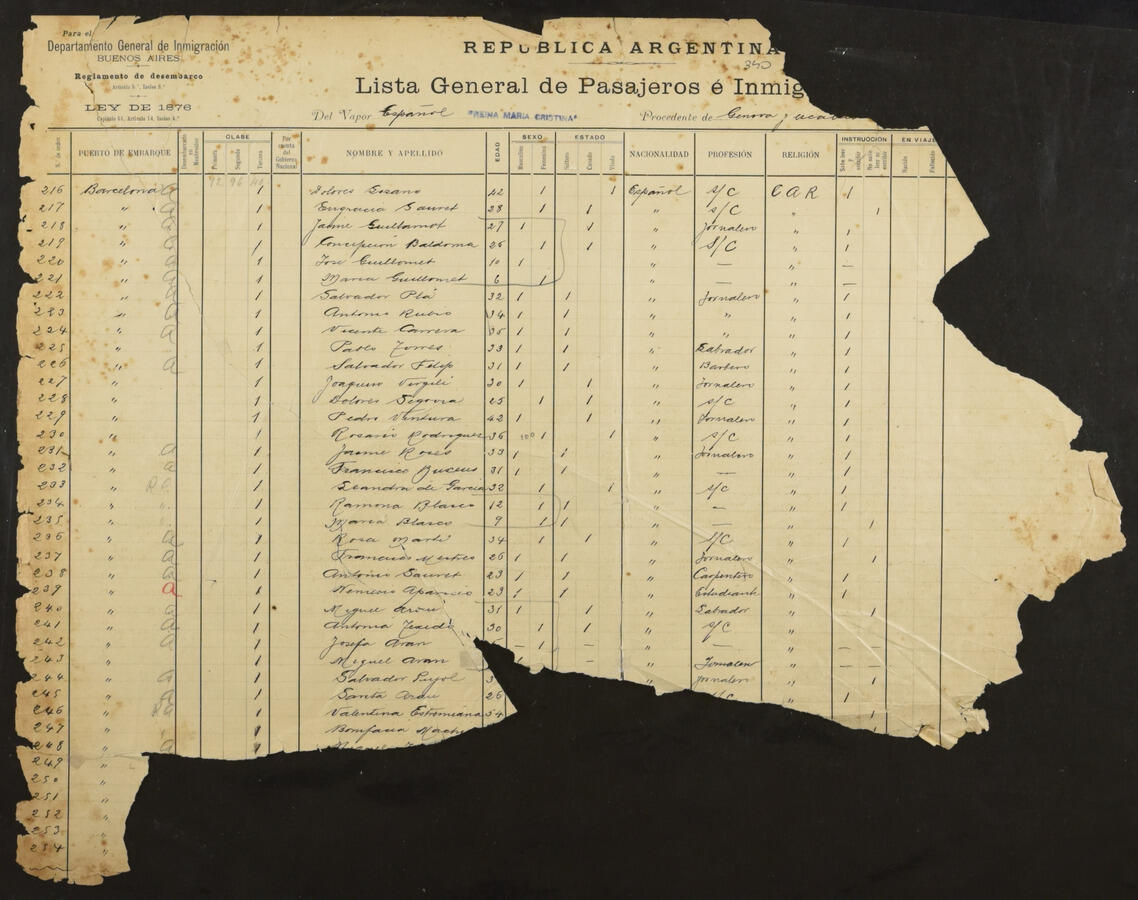 Para el
Departamento General de Inmigración
BUENOS AIRES
Reglamento de desembarco
LEY DE 1876
REPUBLICA ARGENTINA
340
Lista General de Pasajeros é Inmig
Del Vapor Español "REINA MARIA CRISTINA" Procedente de Genova y
N.° de orden PUERTO DE EMBARQUE CLASE Primera Segunda Tercera Por cuenta del Gobierno Nacional NOMBRE Y APELLIDO EDAD SEXO Masculino Femenino ESTADO Soltero Casado Viudo NACIONALIDAD PROFESIÓN RELIGIÓN INSTRUCCIÓN EN VIAJE Nacido Fallecido
216 Barcelona a 1 Dolores Lozano 42 1 1 Español s/C C A R 1
217 " a 1 Engracia Sauret 28 1 1 " s/C " 1
218 " a 1 Jaime Guillamot 27 1 1 " Jornalero " 1
219 " a 1 Concepción Baldoma 26 1 1 " S/C " 1
220 " a 1 Jose Guillomet 10 1 " — " —
221 " a 1 Maria Guillomet 6 1 " — " —
222 " a 1 Salvador Plá 32 1 1 " Jornalero " 1
223 " a 1 Antonio Rubio 34 1 1 " " " 1
224 " a 1 Vicente Carrera 35 1 1 " " " 1
225 " 1 Pablo Torres 33 1 1 " Labrador " 1
226 " a 1 Salvador Felip 31 1 1 " Barbero " 1
227 " 1 Joaquin Virgili 30 1 1 " Jornalero " 1
228 " 1 Dolores Segovia 25 1 1 " s/C " 1
229 " 1 Pedro Ventura 42 1 1 " Jornalero " 1
230 " 1 Rosario Rodriguez 36 1 1 " s/C " 1
231 " a 1 Jaime Roses 33 1 1 " Jornalero " 1
232 " a 1 Francisco 31 1 1 " — " 1
233 " a 1 Leandra de Garcia 32 1 1 " s/C " 1
234 " 1 Ramona Blasco 12 1 1 " — " 1
235 " 1 Maria Blasco 9 1 1 " — " 1
236 " a 1 Rosa Marti 34 1 1 " S/C " 1
237 " a 1 Francisco Mestres 26 1 1 " Jornalero " 1
238 " a 1 Antonio Sauret 23 1 1 " Carpintero " 1
239 " a 1 Nemesio Aparicio 23 1 1 " Estudiante " 1
240 " a 1 Miguel Arau 31 1 1 " Labrador " 1
241 " a 1 Antonia 30 1 1 " s/C " 1
242 " a 1 Josefa Aran — 1 — " — " — —
243 " 1 Miguel Aran 1 — " Jornalero " — —
244 " a 1 Salvador Pujol 3 " Jornalero " 1
245 " a 1 Santa Arau 26 /C 1
246 " a 1 Valentina 54 1
247 " 1 Bonifacia
248 " a 1
249 "
250 "
251 "
252 "
253 "
254 "